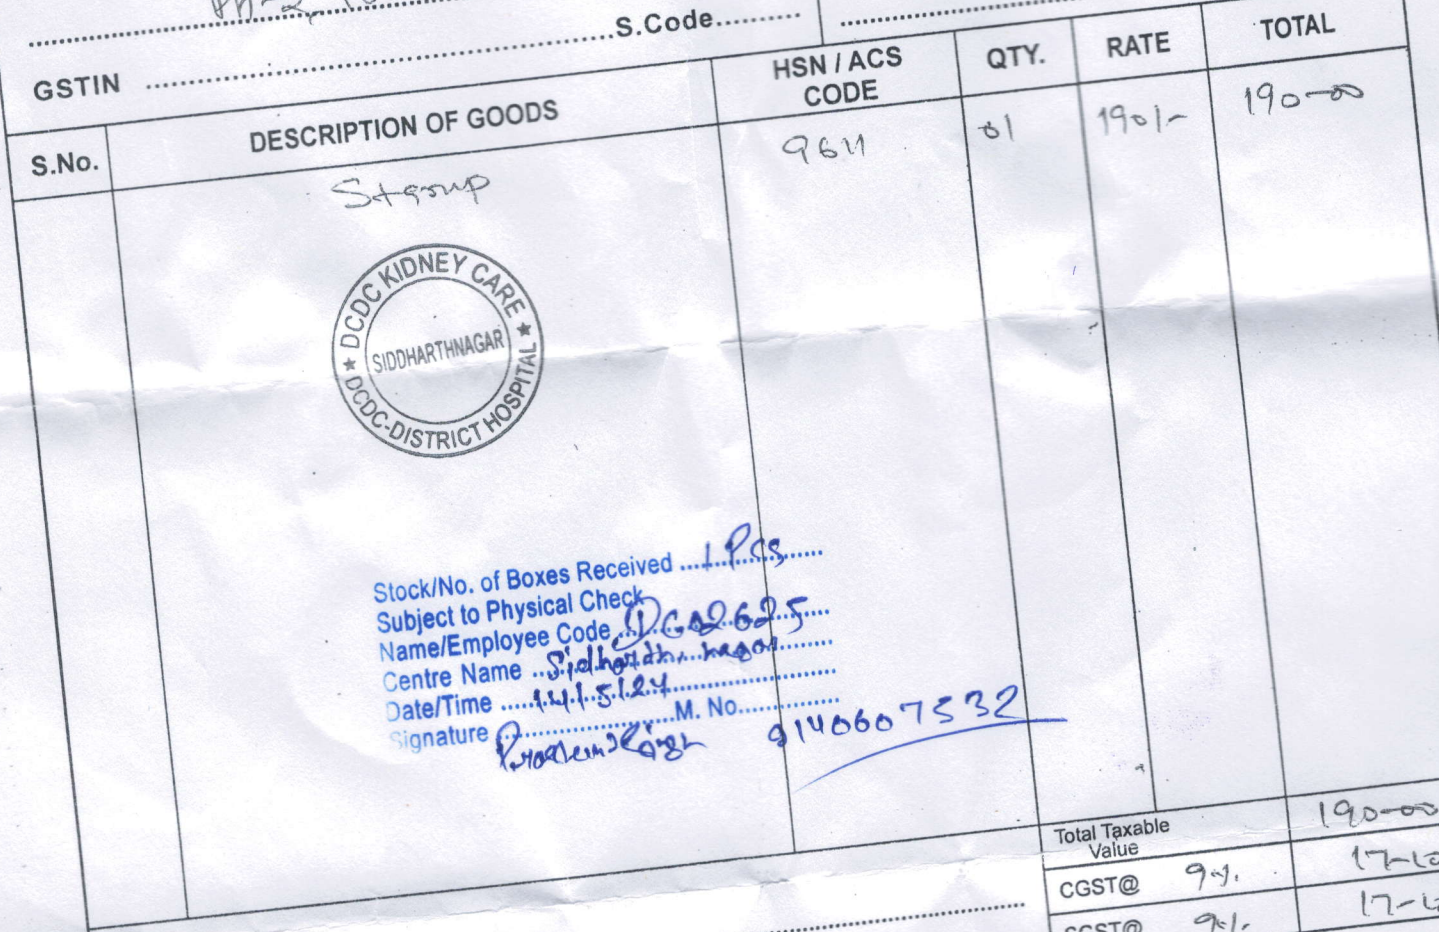 S.Code
GSTIN
S.No. DESCRIPTION OF GOODS HSN / ACS CODE QTY. RATE TOTAL
Stamp 9611 01 190/- 190-00
DCDC KIDNEY CARE
SIDDHARTHNAGAR
★ DCDC-DISTRICT HOSPITAL ★
Stock/No. of Boxes Received 1 Pcs
Subject to Physical Check
Name/Employee Code DC02625
Centre Name Sidharth nagar
Date/Time 14/5/24
Signature M. No. 9140607532
Total Taxable Value 190-00
CGST@ 9%. 17-10
9%.